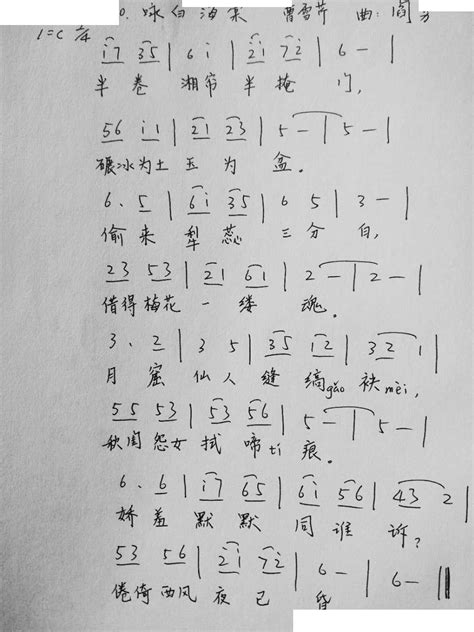 咏白海棠 曹雪芹 曲:阎
1=C 2/4
i7 35 | 6 i | 2i 72 | 6 - |
半卷湘帘半掩门,
56 i1 | 21 23 | 5 - | 5 - |
碾冰为土玉为盆。
6. 5 | 6i 35 | 6 5 | 3 - |
偷来犁蕊三分白,
23 53 | 21 61 | 2 - | 2 - |
借得梅花一缕魂。
3. 2 | 3 5 | 35 12 | 32 1 |
月窟仙人缝缟gǎo袂mèi,
55 53 | 53 56 | 5 - | 5 - |
秋闺怨女拭啼tí痕。
6. 6 | i7 65 | 6i 56 | 43 2 |
娇羞默默同谁诉?
53 56 | 2i 72 | 6 - | 6 - ‖
倦倚西风夜已昏